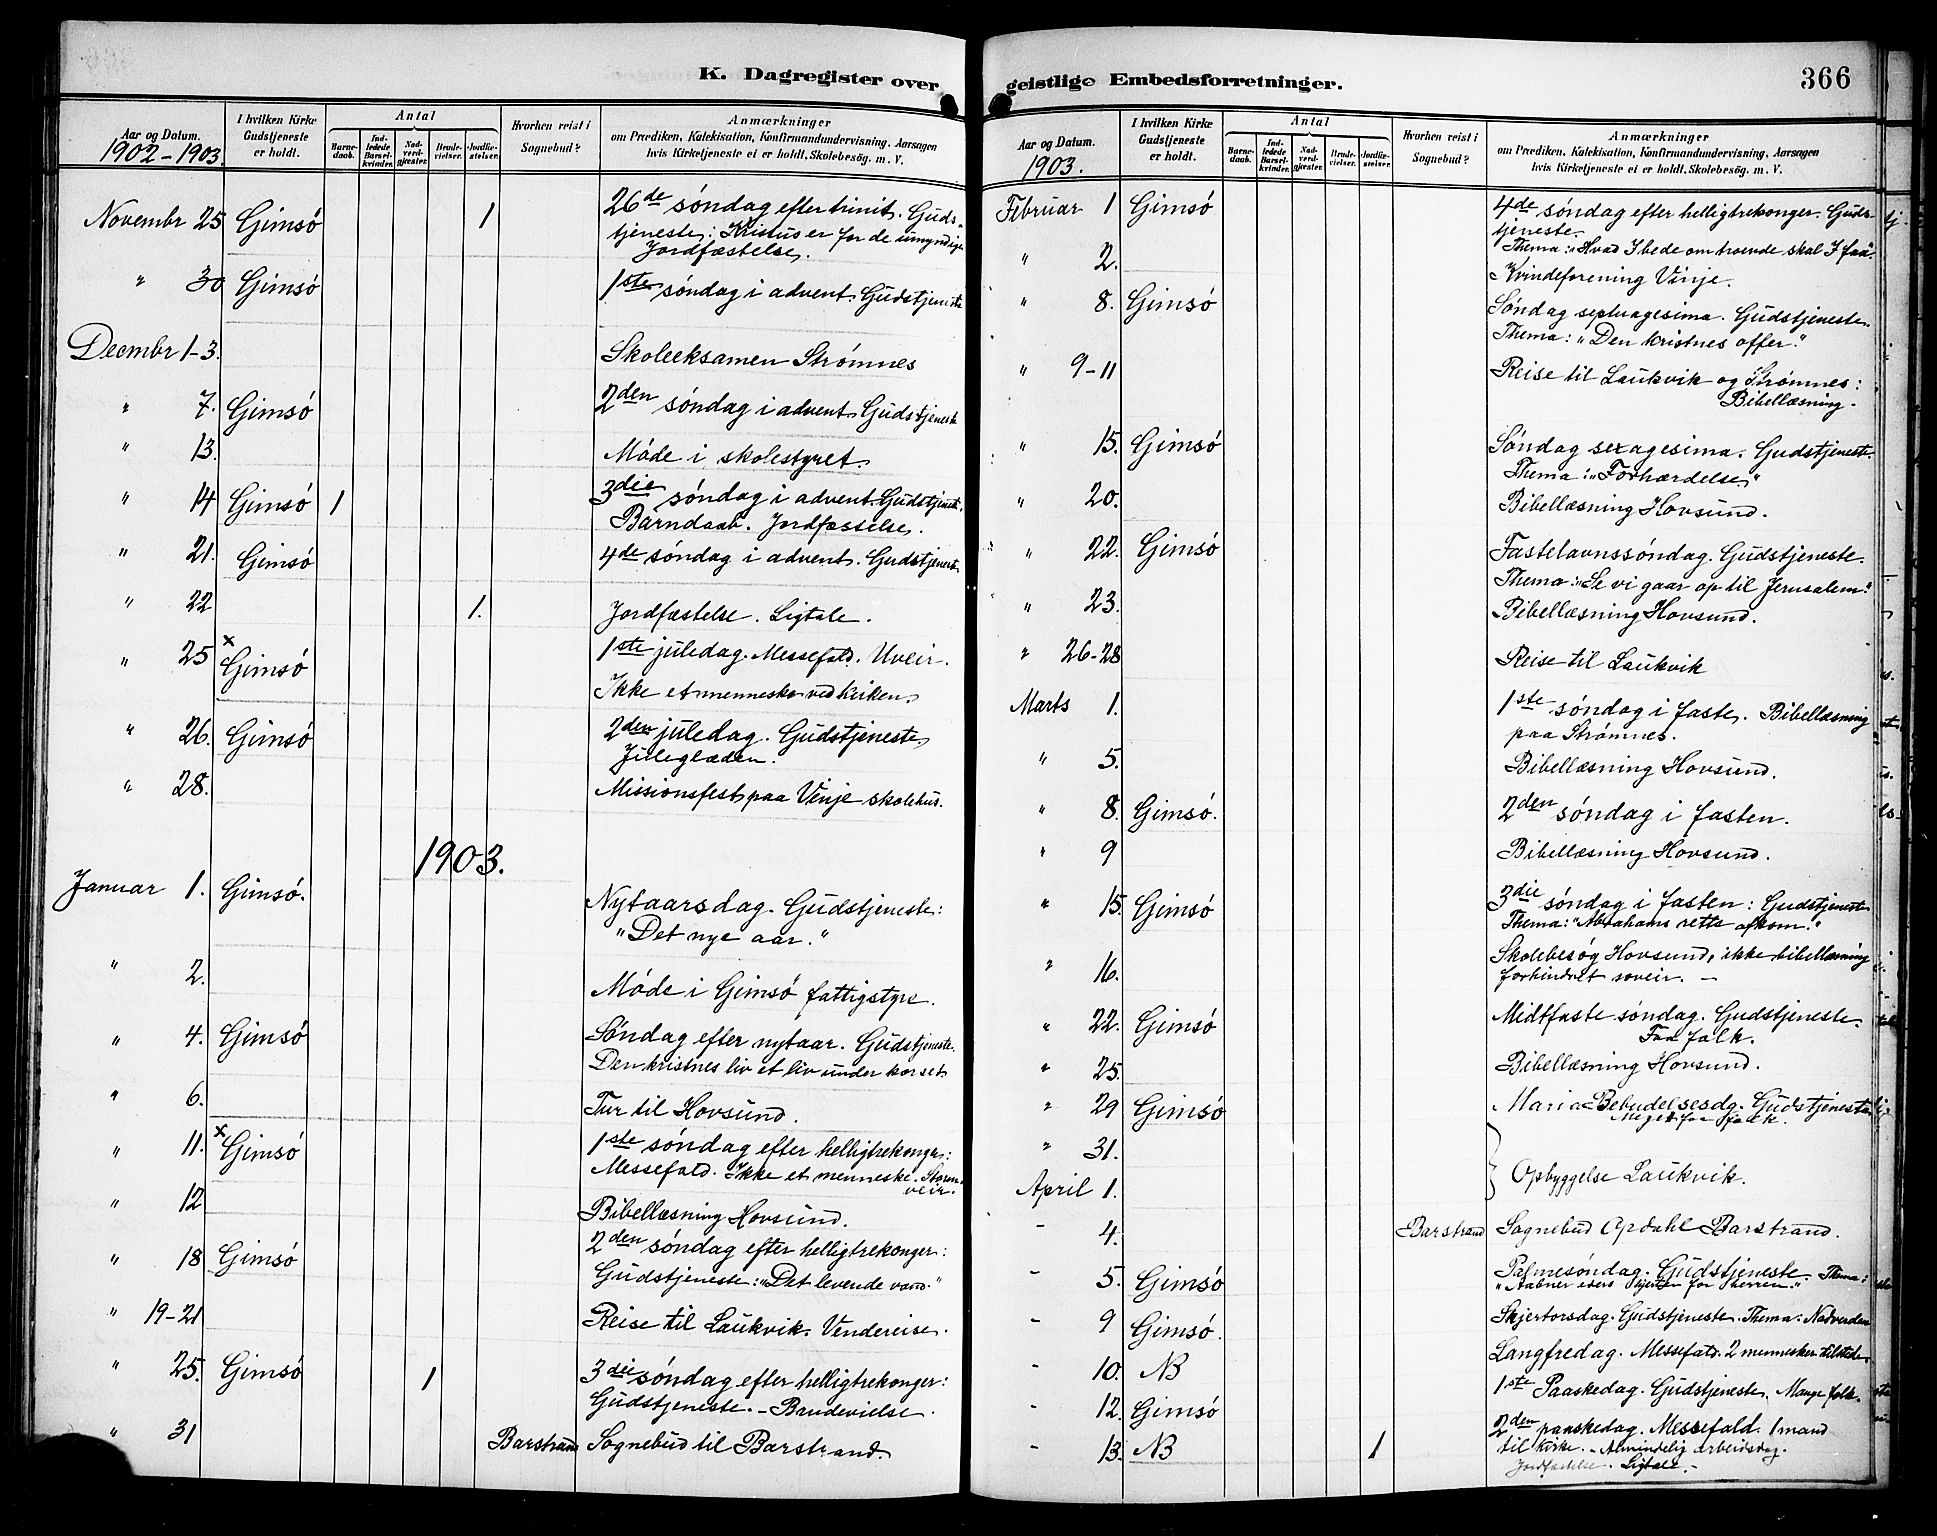 K. Dagregister over
Aar og Datum.
1902-1903.
I hvilken Kirke
Gudstjeneste
er holdt.
Antal
Barne-
daab.
Ind-
ledede
Barsel-
kvinder.
Nad-
verd-
gjester.
Brude-
vielser.
Jordfæ-
stelser.
Hvorhen reist i
Sognebud?
Anmærkninger
om Prædiken, Katekisation, Konfirmandundervisning, Aarsagen
hvis Kirketjeneste ei er holdt, Skolebesøg. m. V.
Novembr 25 Gimsö 1 26de söndag efter trinit. Guds-
tjeneste: Kristus er for de umyndige
Jordfæstelse.
" 30 Gimsö 1ste söndag i advent. Gudstjeneste
Decmbr 1-3. Skoleeksamen Strömnes
" 7. Gimsö 2den söndag i advent Gudstjeneste
" 13. Möde i skolestyret.
" 14 Gimsö 1 3die söndag i advent. Gudstjenest.
Barndaab. Jordfæstelse.
" 21. Gimsö 4de söndag i advent. Gudstjenest
" 22 1. Jordfæstelse. Ligtale.
" 25 x Gimsö 1ste juledag. Messefald. Uveir.
Ikke et menneske ved kirken.
" 26. Gimsö 2den juledag. Gudstjeneste,
Juleglæden.
" 28. Missionsfest paa Vinje skolehus.
1903.
Januar 1. Gimsö. Nytaarsdag. Gudstjeneste:
"Det nye aar."
" 2. Möde i Gimsö fattigstyre.
" 4. Gimsö Söndag efter nytaar. Gudstjeneste.
Den kristnes liv et liv under korset
" 6. Tur til Hovsund.
" 11. x Gimsö 1ste söndag efter helligtrekonger:
Messefald. Ikke et menneske. Storm
veir.
" 12 Bibellæsning Hovsund.
" 18 Gimsö 2den söndag efter helligtrekonger:
Gudstjeneste: "Det levende vand."
" 19-21 Reise til Laukvik. Vendereise.
" 25. Gimsö 1 3die söndag efter helligtrekonger:
Gudstjeneste. - Brudevielse.
" 31 Barstrand Sognebud til Barstrand.
geistlige Embedsforretninger.
366
Aar og Datum.
1903.
I hvilken Kirke
Gudstjeneste
er holdt.
Antal
Barne-
daab.
Ind-
ledede
Barsel-
kvinder.
Nad-
verd-
gjester.
Brude-
vielser.
Jordfæ-
stelser.
Hvorhen reist i
Sognebud?
Anmærkninger
om Prædiken, Katekisation, Konfirmandundervisning, Aarsagen
hvis Kirketjeneste ei er holdt, Skolebesög. m. V.
Februar 1 Gimsö 4de söndag efter helligtrekonger. Guds-
tjeneste.
Thema: "Hvad I bede om troende skal I faa".
" 2. Kvindeforening Vinje.
" 8. Gimsö Söndag septuagesima. Gudstjeneste.
Thema: "Den kristnes offer."
" 9-11 Reise til Laukvik og Strömnes:
Bibellæsning.
" 15. Gimsö Söndag sexagesima. Gudstjeneste.
Thema: "Forhærdelse"
" 20. Bibellæsning Hovsund.
" 22. Gimsö Fastelavnssöndag. Gudstjeneste.
Thema: "Se vi gaar op til Jerusalem."
" 23. Bibellæsning Hovsund.
" 26-28 Reise til Laukvik
Marts 1. 1ste söndag i faste. Bibellæsning
paa Strömnes.
" 5. Bibellæsning Hovsund.
" 8. Gimsö. 2den söndag i fasten.
" 9 Bibellæsning Hovsund.
" 15. Gimsö 3die söndag i fasten: Gudstjeneste
Thema: "Abrahams rette afkom."
" 16. Skolebesög Hovsund, ikke bibellæsning
forhindret soveir. -
" 22. Gimsö Midtfaste söndag. Gudstjeneste.
Faa folk.
" 25. Bibellæsning Hovsund.
" 29 Gimsö Maria Bebudelsesdg. Gudstjeneste
Meget faa folk.
" 31.
April 1. Opbyggelse Laukvik.
- 4. Barstrand Sognebud Opdahl Barstrand.
- 5. Gimsö Palmesöndag. Gudstjeneste. Thema:
"Aabner eders hjerter for Herren."
- 9 Gimsö. Skjertorsdag. Gudstjeneste. Thema: Nadverden
- 10. NB Langfredag. Messefald. 2 mennesker tilstede.
- 12. Gimsö 1ste Paaskedag. Gudstjeneste. Mange folk.
- 13. NB 1 2den paaskedag. Messefald. 1 mand
til kirke. - Almindelig arbeidsdag.
Jordfæstelse. Ligtale. -